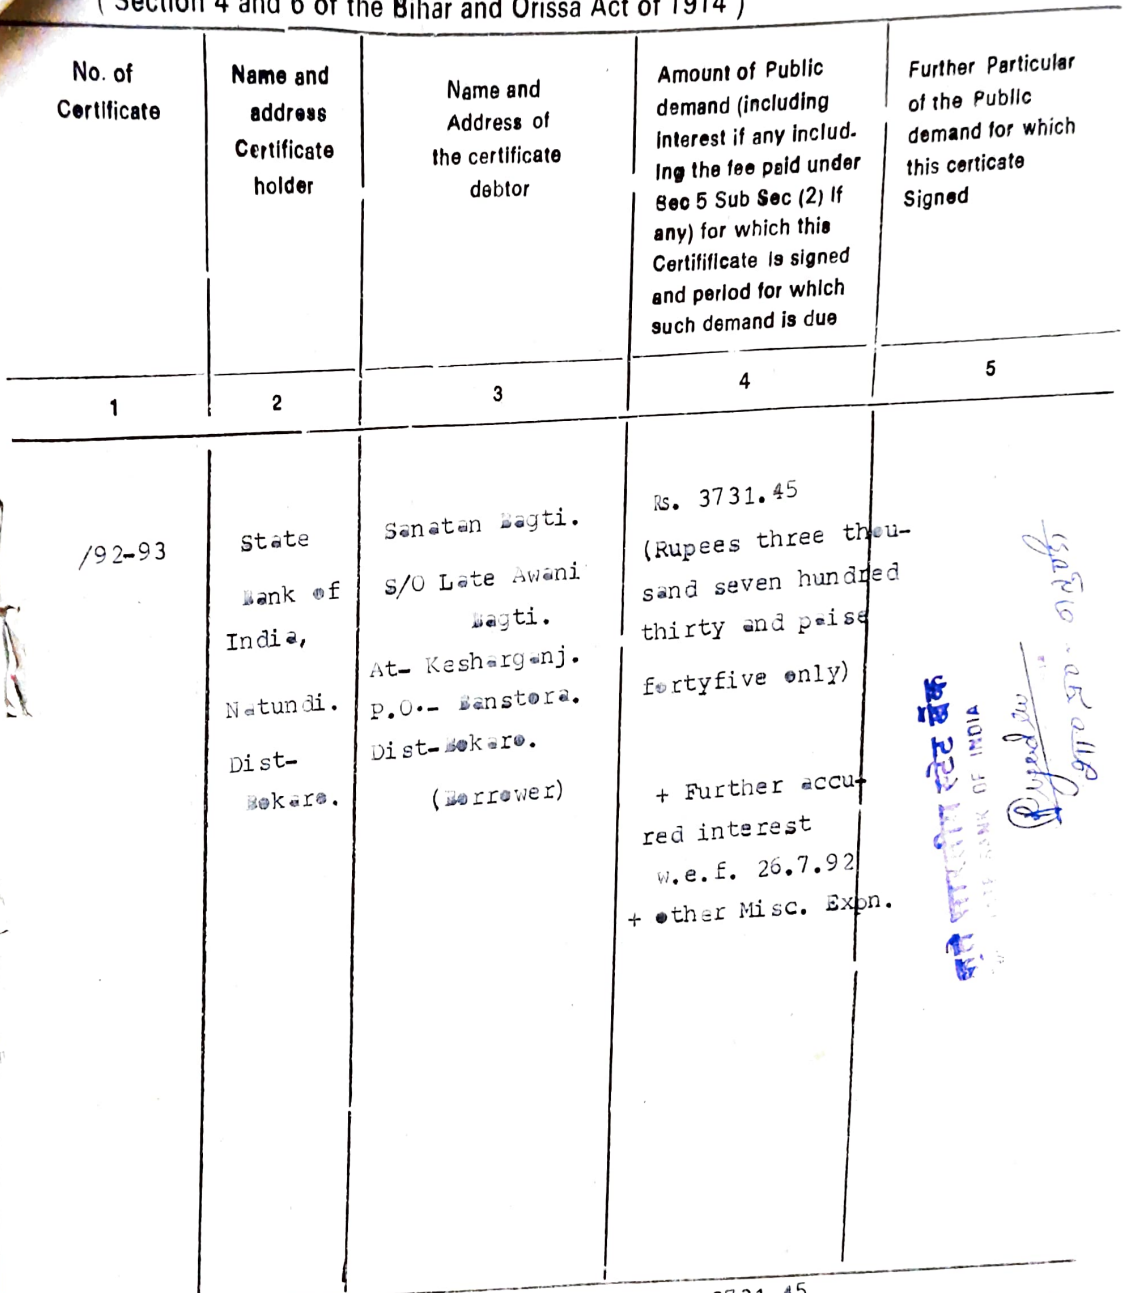 ( Section 4 and 6 of the Bihar and Orissa Act of 1914 )
No. of
Certificate
Name and
address
Certificate
holder
Name and
Address of
the certificate
debtor
Amount of Public
demand (including
interest if any includ.
ing the fee paid under
Sec 5 Sub Sec (2) If
any) for which this
Certifificate is signed
and period for which
such demand is due
Further Particular
of the Public
demand for which
this certicate
Signed
1
2
3
4
5
/92-93
State
Bank of
India,
Natundi.
Dist-
Bokaro.
Sanatan Bagti.
S/O Late Awani
Bagti.
At- Kesharganj.
P.O.- Banstora.
Dist-Bokaro.
(Borrower)
Rs. 3731.45
(Rupees three thou-
sand seven hundred
thirty and paise
fortyfive only)
+ Further accu-
red interest
w.e.f. 26.7.92
+ other Misc. Expn.
BANK OF INDIA
3731.45